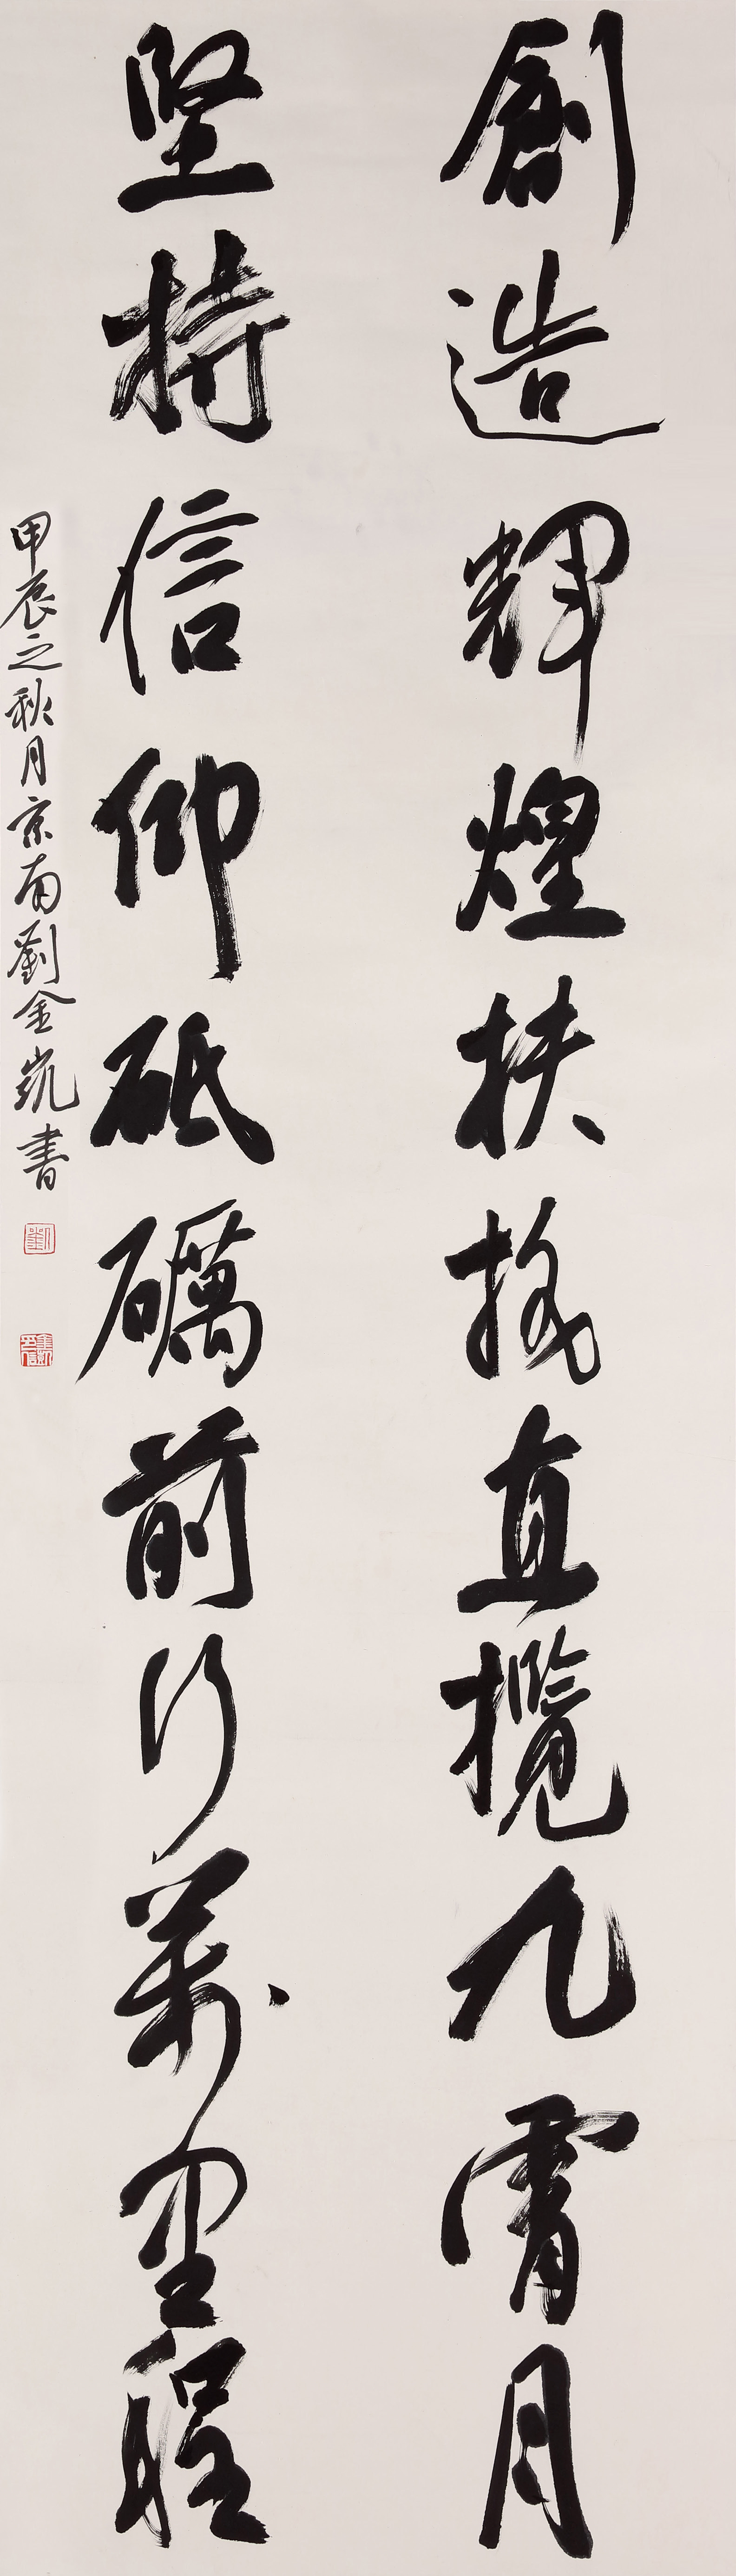 創造輝煌扶搖直攬九霄月
堅持信仰砥礪前行萬里程
甲辰之秋月京南劉金凱書